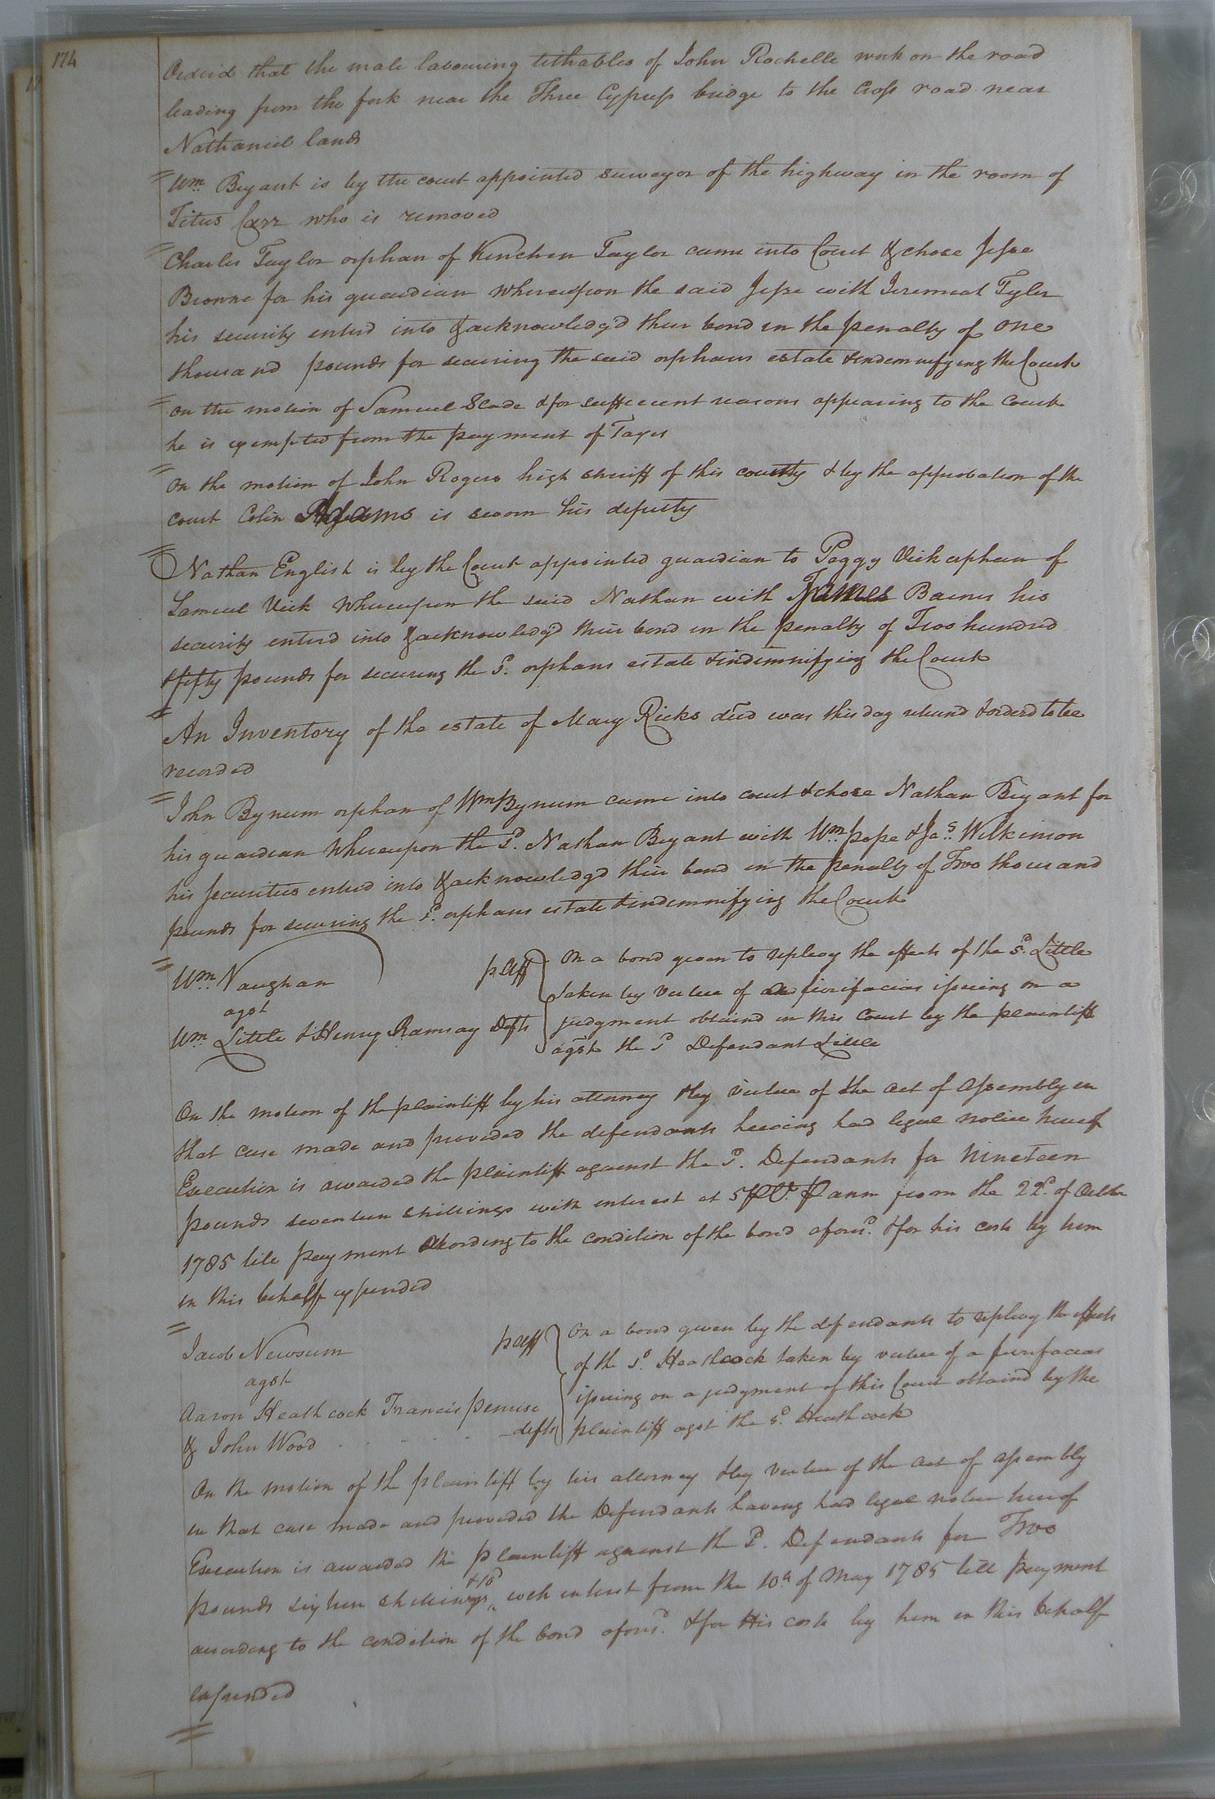 174
Orderd that the male labouring tithables of John Rochelle work on the road
leading from the fork near the Three Cypress bridge to the Cross road near
Nathaniel lands
Wm Bryant is by the court appointed surveyor of the highway in the room of
Titus Carr who is removed
Charles Taylor orphan of Kinchen Taylor came into Court & chose Jesse
Browne for his guardian whereupon the said Jesse with Jeremiah Tyler
his security enterd into & acknowledg'd their bond in the penalty of one
thousand pounds for securing the said orphans estate & indemnifying the Court
On the motion of Samuel Slade & for sufficient reasons appearing to the Court
he is exempted from the payment of Taxes
On the motion of John Rogers high sheriff of this county & by the approbation of the
court Colin is sworn his deputy
Nathan English is by the Court appointed guardian to Peggy Vick orphan of
Samuel Vick whereupon the said Nathan with James Barnes his
security enterd into & acknowledg'd their bond in the penalty of Two hundred
& fifty pounds for securing the Sd. orphans estate & indemnifying the Court
An Inventory of the estate of Mary Ricks decd was this day returnd & orderd to be
recorded
John Bynum orphan of Wm Bynum came into court & chose Nathan Bryant for
his guardian Whereupon the Sd. Nathan Bryant with Wm pope & Jas Wilkinson
his securities enterd into & acknowledg'd their bond in the penalty of Two thousand
pounds for securing the sd. orphans estate & indemnifying the Court
Wm Vaughan plff
agst
Wm Little & Henry Ramsay Defts
On a bond given to replevy the effects of the sd. Little
taken by virtue of a fierifacias issuing on a
judgment obtaind in this Court by the plaintiff
agst the sd Defendant Little
On the motion of the plaintiff by his attorney & by virtue of the act of Assembly in
that case made and provided the defendants having had legal notice hereof
Execution is awarded the plaintiff against the sd. Defendants for Nineteen
pounds seventeen shillings with interest at 5 PCt. P ann from the 22d. of October
1785 till payment according to the condition of the bond aforesd. & for his costs by him
in this behalf expended
Jacob Newsum plff
agst
Aaron Heathcock Francis penrise
& John Wood . . . . defts
On a bond given by the defendants to replevy the effects
of the sd. Heathcock taken by virtue of a fierifacias
issuing on a judgment of this Court obtaind by the
plaintiff agst the sd. Heathcock
On the motion of the plaintiff by his attorney & by virtue of the act of assembly
in that case made and provided the Defendants having had legal notice hereof
Execution is awarded the plaintiff against the sd. Defendants for Two
pounds sixteen shillings with interest from the 10th of May 1785 till payment
according to the condition of the bond aforesd. & for His costs by him in this behalf
expended